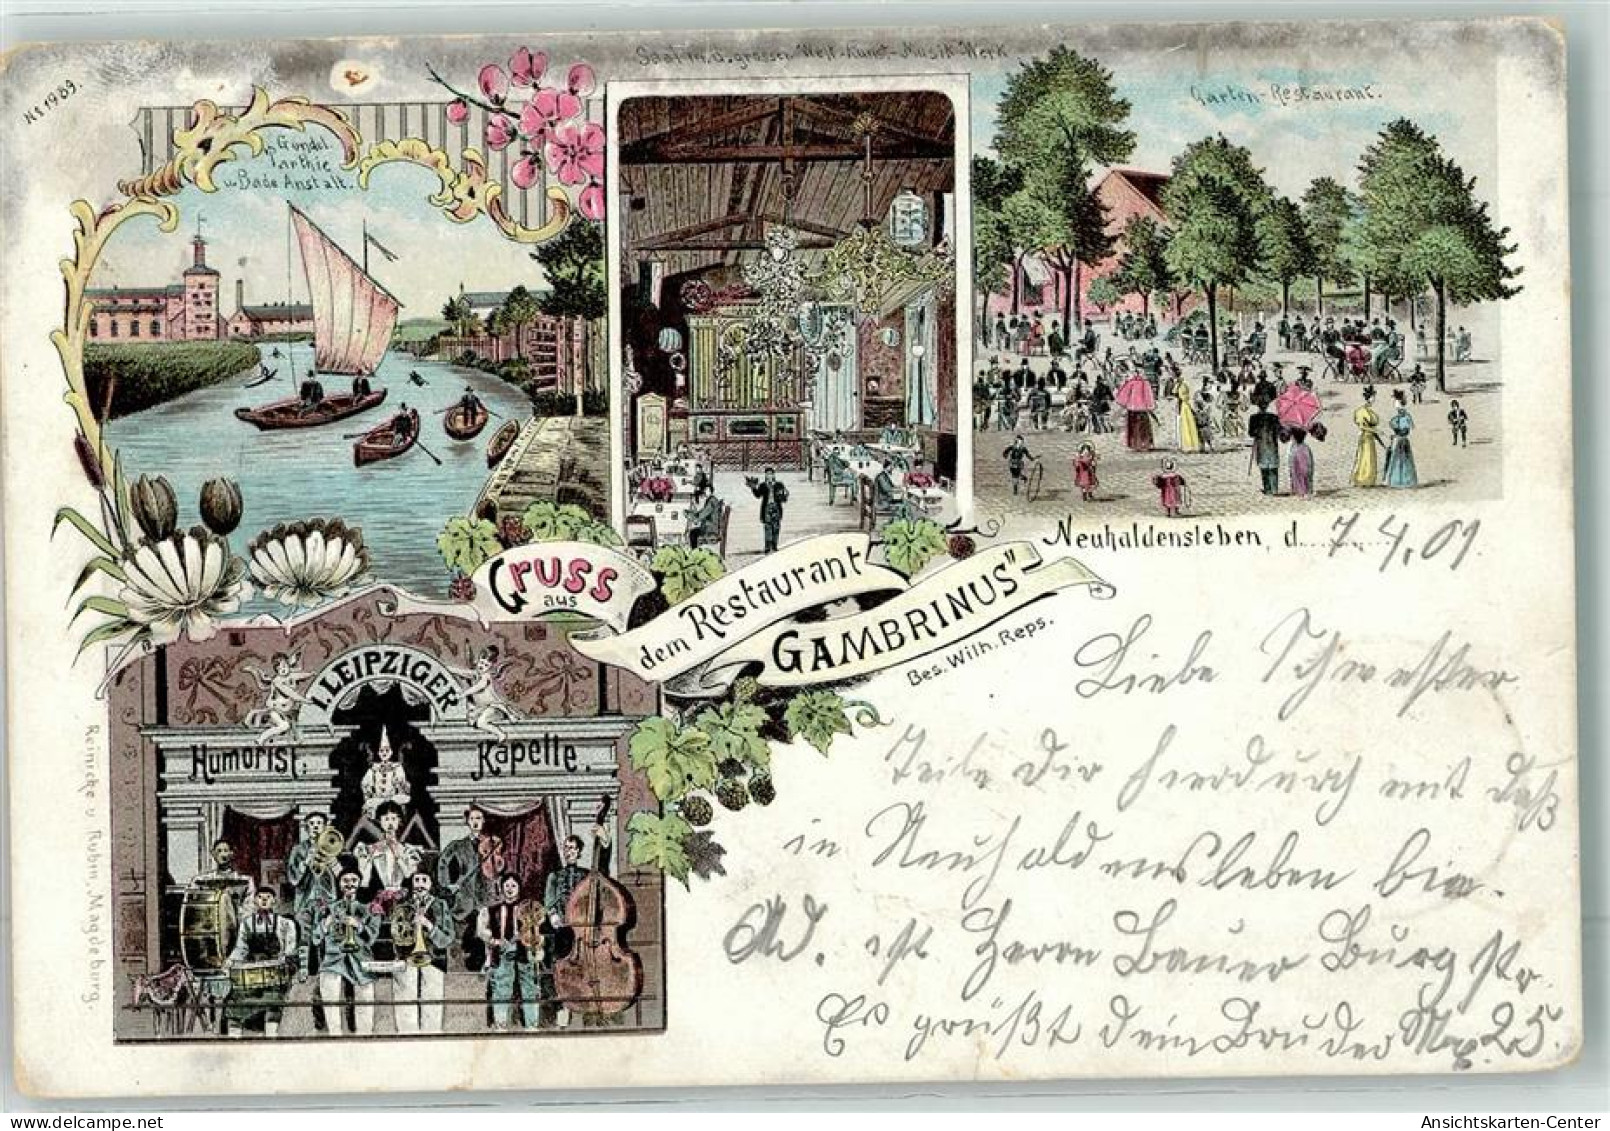 No 1989.
Gondel
Parthie
u. Bade Anstalt.
Saal m. d. grossen Welt-Kunst-Musik-Werk
Garten-Restaurant.
Neuhaldensleben, d. 7. 4. 01.
Gruss
aus
dem Restaurant
GAMBRINUS"
Bes. Wilh. Reps.
I. LEIPZIGER
Humorist. Kapelle.
Reinicke u. Rubin, Magdeburg.
Liebe Schwester
Teile Dir hierdurch mit daß
in Neuhaldensleben bin.
Ad. ist Herrn Bauer Burgstr.
Es grüßt dein Bruder 25.
Ansichtskarten-Center